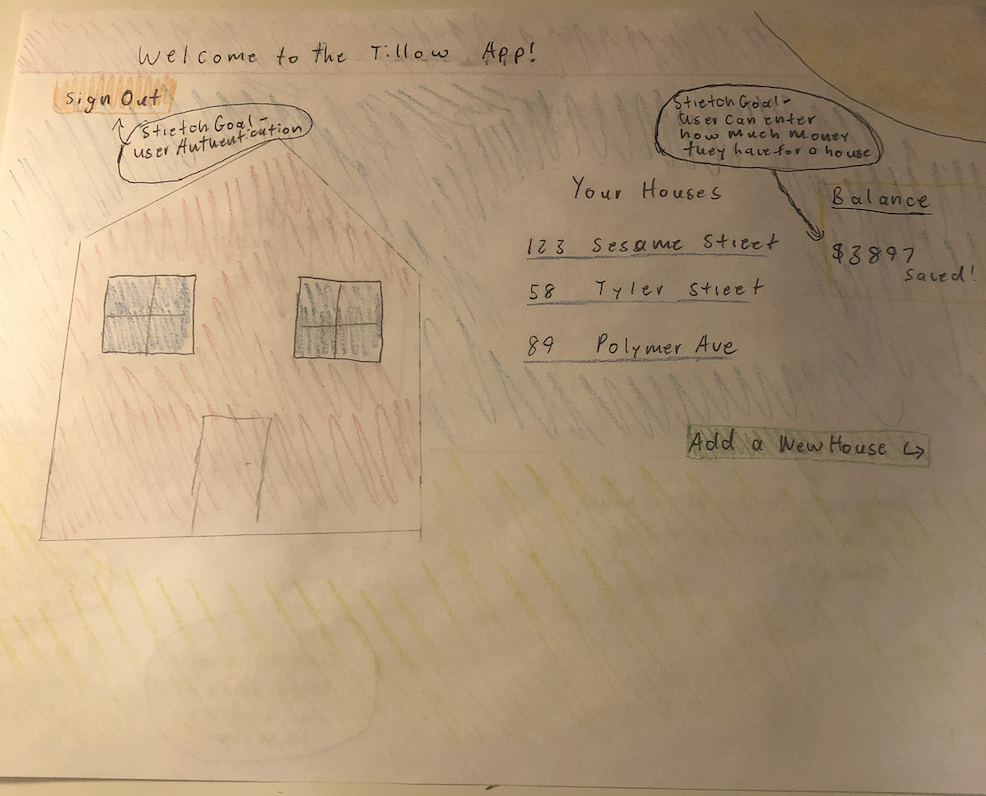 Welcome to the Tillow App!
Sign Out
Stretch Goal-
user Authentication
Stretch Goal-
user can enter
how much money
they have for a house
Your Houses
123 Sesame Street
58 Tyler Street
89 Polymer Ave
Balance
$3897
saved!
Add a New House ↪